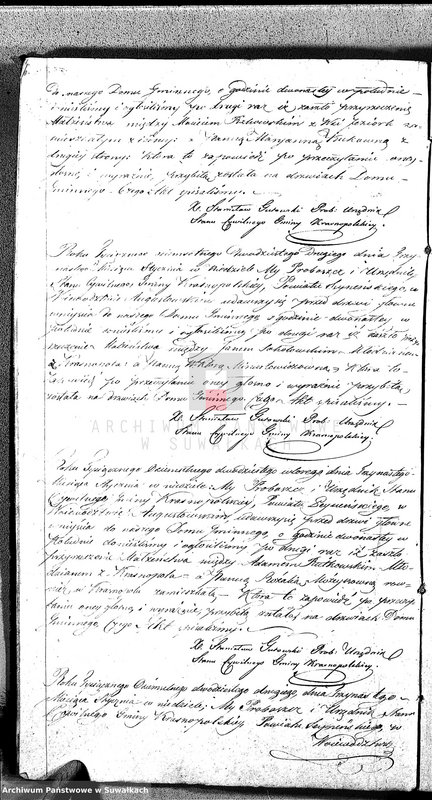 Do naszego Domu Gminnego, o godzinie dwunastej w południe
donieśliśmy i ogłosiliśmy po drugi raz iż zaszło przyrzeczenie
Małżeństwa między Maciejem z Wsi Jeziork za
mieszkałym z iedney: a Panną Maryanną
z drugiey strony: Która to zapowiedź po przeczytaniu oney
głośno i wyraźnie, przybita została na drzwiach Domu
Gminnego. Czego Akt spisaliśmy.
X. Stanisław Gutowski Prob. Urzędnik
Stanu Cywilnego Gminy Krasnopolskiey
Roku Tysiącznego Ośmsetnego Dwudziestego Drugiego dnia Trzy
nastego Miesiąca Stycznia w Niedzielę My Proboszcz i Urzędnik
Stanu Cywilnego Gminy Krasnopolskiey, Powiatu Seyneńskiego, w
Wojewodztwie Augustowskim udawszy się przed drzwi główne
wnyiścia do naszego Domu Gminnego o godzinie dwunastey w
południe donieśliśmy i ogłosiliśmy po drugi raz iż zaszło przy
rzeczenie Małżeństwa między Janem Sokołowskim Młodzianem
z Krasnopola a Panną Która to
zapowiedź po przeczytaniu oney głośno i wyraźnie przybita
została na drzwiach Domu Gminnego. Czego Akt spisaliśmy.
X. Stanisław Gutowski Prob. Urzędnik
Stanu Cywilnego Gminy Krasnopolskiey.
ARCHIWUM PAŃSTWOWE
W SUWAŁKACH
Roku Tysiącznego Ośmsetnego dwudziestego wtorego dnia Trzynastego
Miesiąca Stycznia w niedzielę My Proboszcz i Urzędnik Stanu
Cywilnego Gminy Krasnopolskiey, Powiatu Seyneńskiego, w
Wojewodztwie Augustowskim, udawszy się przed drzwi główne
wnyiścia do naszego Domu Gminnego o godzinie dwunastey w
Południe donieśliśmy i ogłosiliśmy po drugi raz iż zaszło
przyrzeczenie Małżeństwa między Adamem Rutkowskim Mło
dzianem z Krasnopola a Panną Rozalią row
nież w Krasnopolu zamieszkałą. Która to zapowiedź po przeczy
taniu oney głośno, i wyraźnie, przybita została na drzwiach Domu
Gminnego Czego Akt spisaliśmy.
X. Stanisław Gutowski Prob. Urzędnik
Stanu Cywilnego Gminy Krasnopolskiey.
Roku Tysiącznego Ośmsetnego dwudziestego drugiego dnia Trzynastego
Miesiąca Stycznia w niedzielę, My Proboszcz i Urzędnik Stanu
Cywilnego Gminy Krasnopolskiey Powiatu Seyneńskiego, w
Wojewodztwie
Archiwum Państwowe w Suwałkach